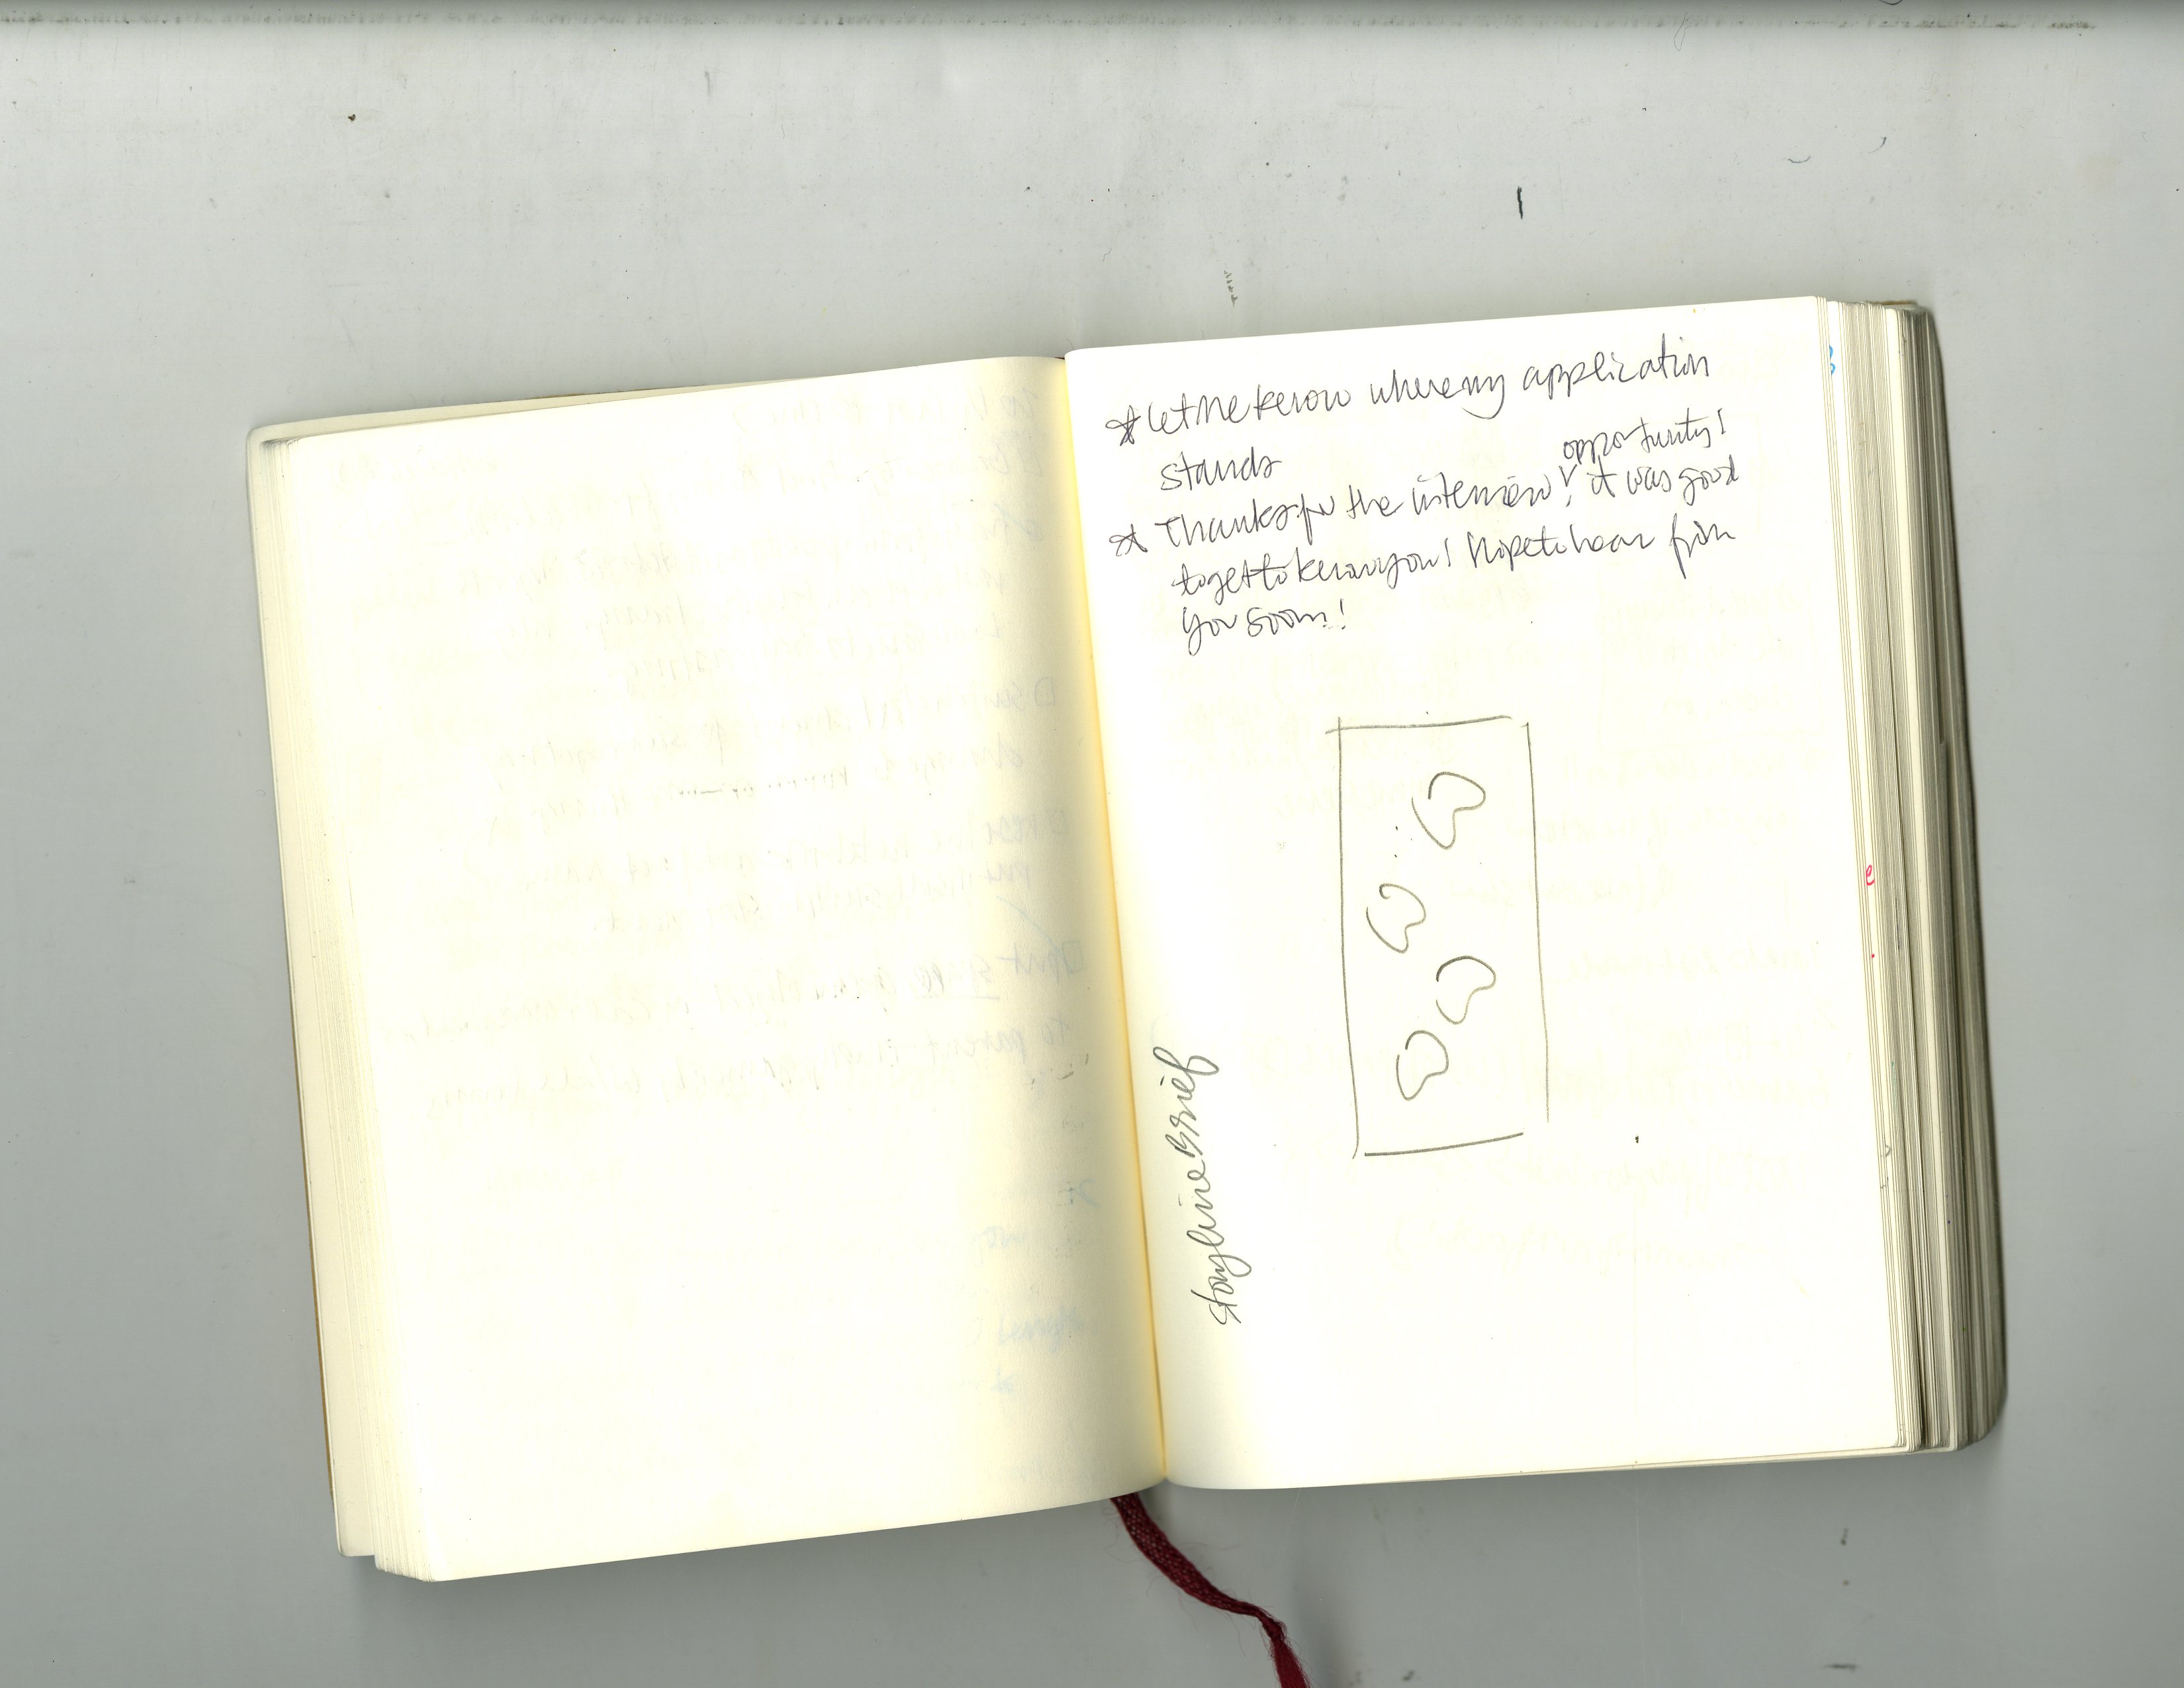 * Let me know where my application
stands
opportunity!
* Thanks for the interview! it was good
to get to know you! Hope to hear from
you soon!
Storyline Brief